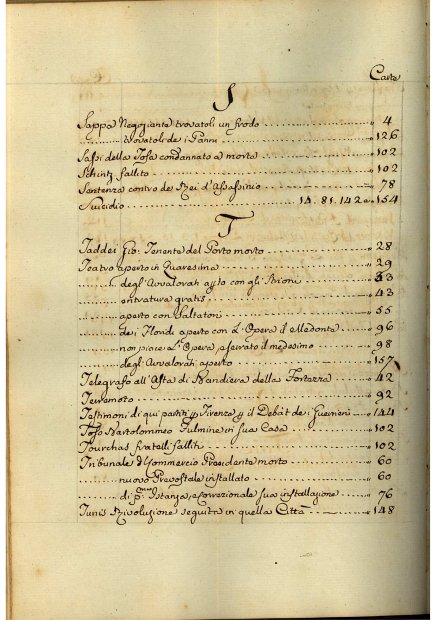 Carte
S
Sappa Negoziante trovatoli un frodo 4
trovatoli de i Panni 126
Sassi della Tosa condannato a morte 102
Schintz fallito 102
Sentenza contro de Rei d'Assassinio 78
Suicidio 14. 81. 142 e 154
T
Taddei Gio: Tenente del Porto morto 28
Teatro aperto in Quaresima 29
degl'Avvalorati aplo con gli Strioni 33
entratura gratis 43
aperto con Saltatori 55
dei Floridi aperto con L'Opera il Medonte 96
non piace L'Opera, e serrato il medesimo 98
degl'Avvalorati aperto 157
Telegrafo all'Asta di Bandiera della Fortezza 42
Terremoto 92
Testimoni di qui partiti p Firenze p il Debàt de i Guerrieri 144
Toso Bartolommeo Fulmine in sua Casa 102
Tourchas fratelli falliti 102
Tribunale d Commercio Presidente morto 60
nuovo Prevostale installato 60
di pma Istanza, e Correzionale sua installazione 76
Tunis Rivoluzione seguita in quella Città 148